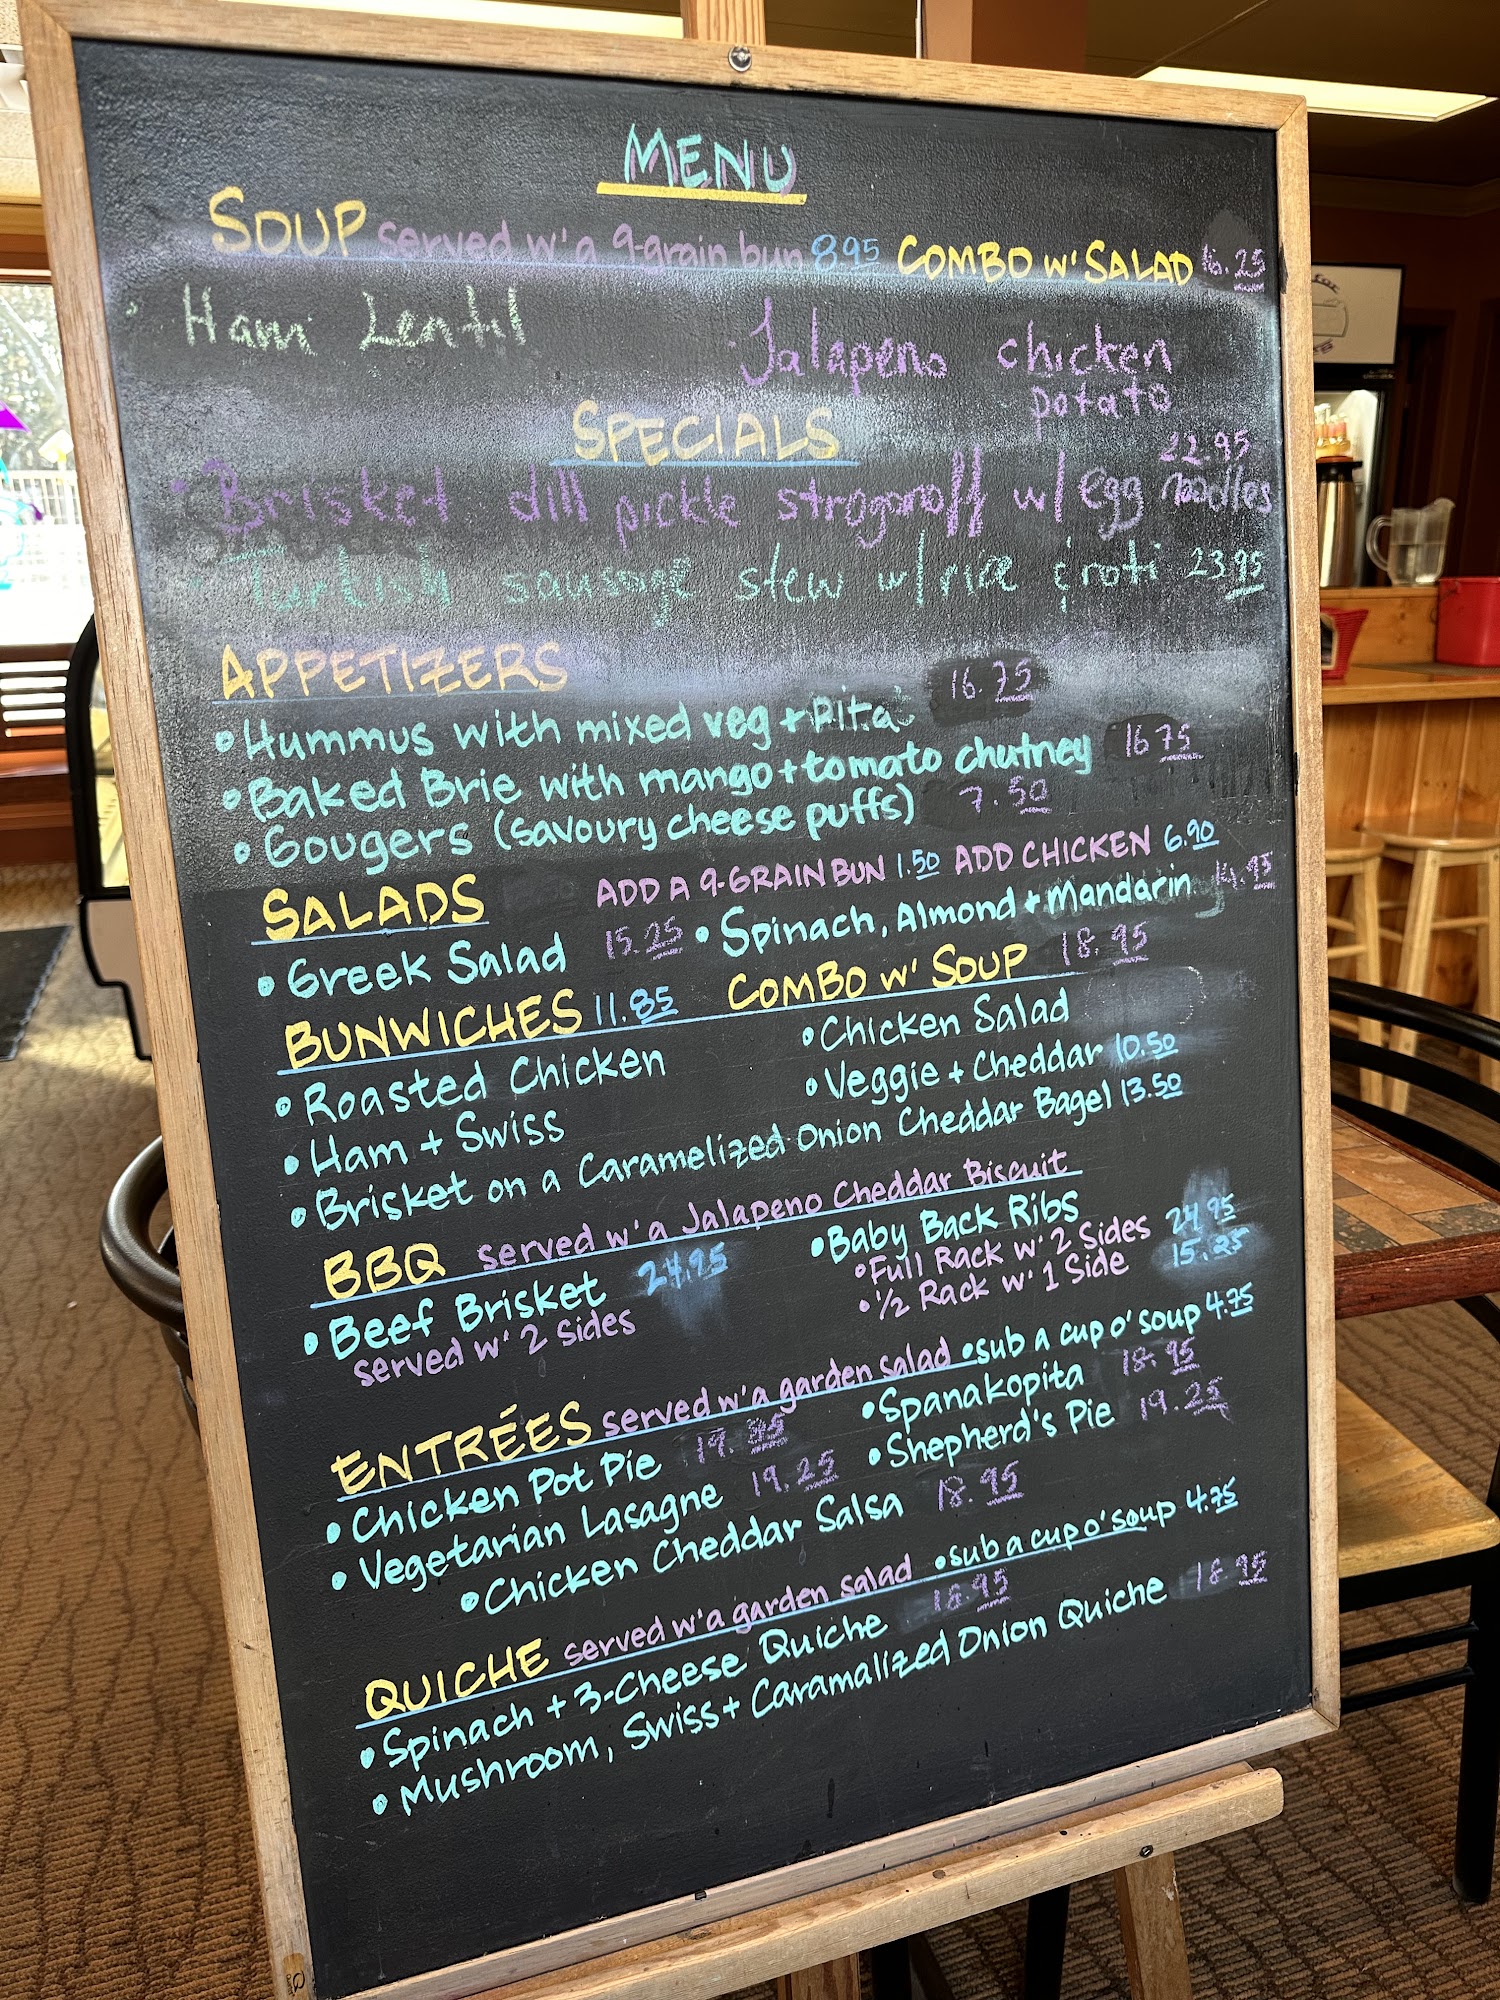 MENU
SOUP served w' a 9-grain bun 8.95 COMBO w' SALAD 16.25
• Ham Lentil • Jalapeno chicken
potato
SPECIALS
22.95
• Brisket dill pickle strogonoff w/ egg noodles
• Turkish sausage stew w/ rice & roti 23.95
APPETIZERS
• Hummus with mixed veg + pita 16.75
• Baked Brie with mango + tomato chutney 16.75
• Gougers (savoury cheese puffs) 7.50
SALADS ADD A 9-GRAIN BUN 1.50 ADD CHICKEN 6.90
• Greek Salad 15.25 • Spinach, Almond + Mandarin 14.95
BUNWICHES 11.85 COMBO w' SOUP 18.95
• Roasted Chicken • Chicken Salad
• Ham + Swiss • Veggie + Cheddar 10.50
• Brisket on a Caramelized Onion Cheddar Bagel 13.50
BBQ served w' a Jalapeno Cheddar Biscuit
• Beef Brisket 24.95 • Baby Back Ribs
served w' 2 sides • Full Rack w' 2 Sides 24.95
• 1/2 Rack w' 1 Side 15.25
ENTRÉES served w' a garden salad • sub a cup o' soup 4.75
• Chicken Pot Pie • Spanakopita 18.95
• Vegetarian Lasagne 19.25 • Shepherd's Pie 19.25
• Chicken Cheddar Salsa 18.95
QUICHE served w' a garden salad • sub a cup o' soup 4.75
• Spinach + 3-Cheese Quiche 18.95
• Mushroom, Swiss + Caramalized Onion Quiche 18.95